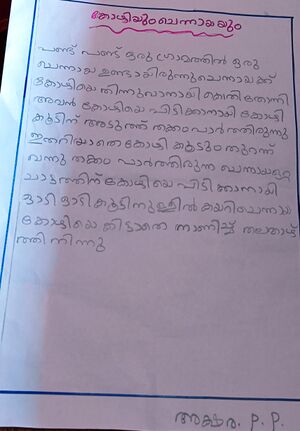 കോഴിയും ചെന്നായയും
പണ്ട് പണ്ട് ഒരു ഗ്രാമത്തിൽ ഒരു
ചെന്നായ ഉണ്ടായിരുന്നു ചെന്നായക്ക്
കോഴിയെ തിന്നുവാനായി കൊതി തോന്നി
അവൻ കോഴിയെ പിടിക്കാനായി കോഴി
കൂടിന് അടുത്ത് തക്കം പാർത്തിരുന്നു
ഇതറിയാതെ കോഴി കൂടും തുറന്ന്
വന്നു തക്കം പാർത്തിരുന്ന ചെന്നായ ഒറ്റ
ചാട്ടത്തിന് കോഴിയെ പിടിക്കാനായി
ഓടി ഓടി കൂടിനുള്ളിൽ കയറി ചെന്നായ
കോഴിയെ കിട്ടാതെ നാണിച്ച് തലതാഴ്
ത്തി നിന്നു
അക്ഷര. P. P.